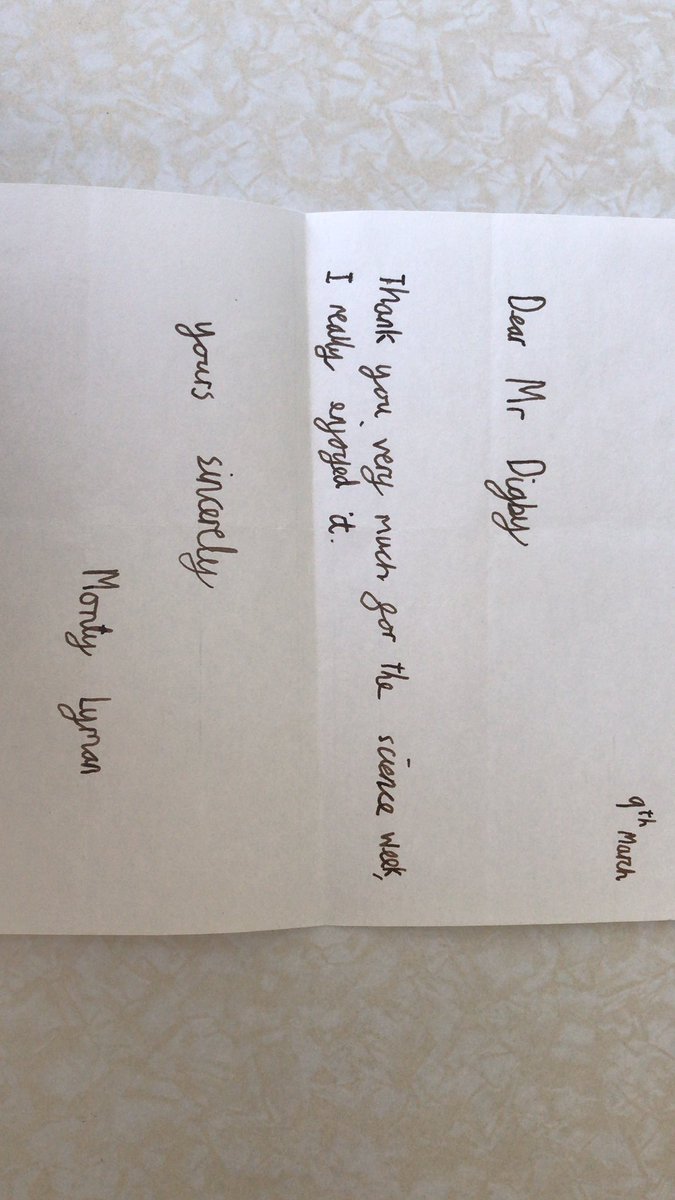 9th March
Dear Mr Digby
Thank you very much for the science week,
I really enjoyed it.
yours sincerely
Monty Lyman